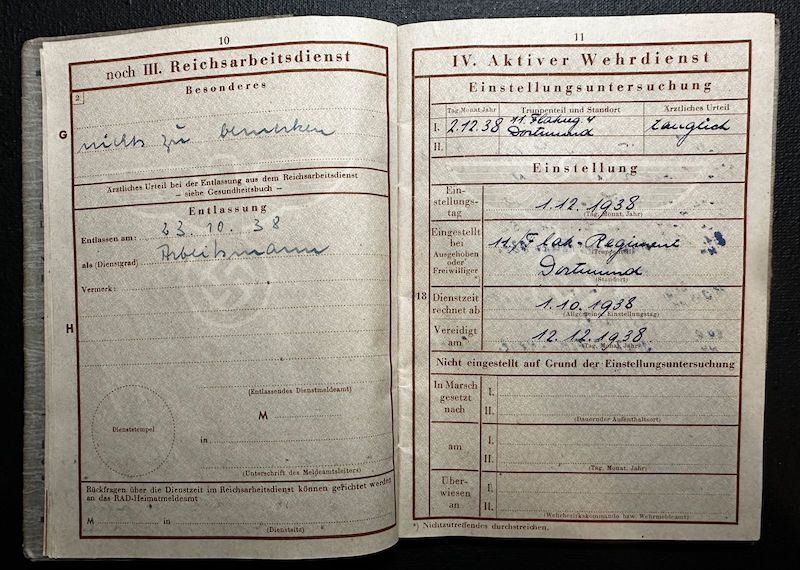 10
noch III. Reichsarbeitsdienst
2
Besonderes
G
nichts zu bemerken
Ärztliches Urteil bei der Entlassung aus dem Reichsarbeitsdienst
– siehe Gesundheitsbuch –
Entlassung
Entlassen am: 23. 10. 38
als (Dienstgrad) Arbeitsmann
Vermerk:
H
(Entlassendes Dienstmeldeamt)
M
Dienststempel
in
(Unterschrift des Meldeamtsleiters)
Rückfragen über die Dienstzeit im Reichsarbeitsdienst können gerichtet werden
an das RAD-Heimatmeldeamt:
M in
(Dienstsitz)
11
IV. Aktiver Wehrdienst
Einstellungsuntersuchung
Tag Monat Jahr Truppenteil und Standort Ärztliches Urteil
I. 2.12.38 11. Flakreg. 4 tauglich
Dortmund
II.
Einstellung
Ein-
stellungs-
tag
1.12.1938
(Tag, Monat, Jahr)
Eingestellt
bei
Ausgehoben
oder
Freiwilliger *)
11. Flak-Regiment
(Truppenteil)
Dortmund
(Standort)
18
Dienstzeit
rechnet ab
1.10.1938
(Allgemeiner Einstellungstag)
Vereidigt
am
12.12.1938
(Tag, Monat, Jahr)
Nicht eingestellt auf Grund der Einstellungsuntersuchung
In Marsch
gesetzt
nach
I.
II.
(Dauernder Aufenthaltsort)
am
I.
II.
(Tag, Monat, Jahr)
Über-
wiesen
an
I.
II.
(Wehrbezirkskommando bzw. Wehrmeldeamt)
*) Nichtzutreffendes durchstreichen.